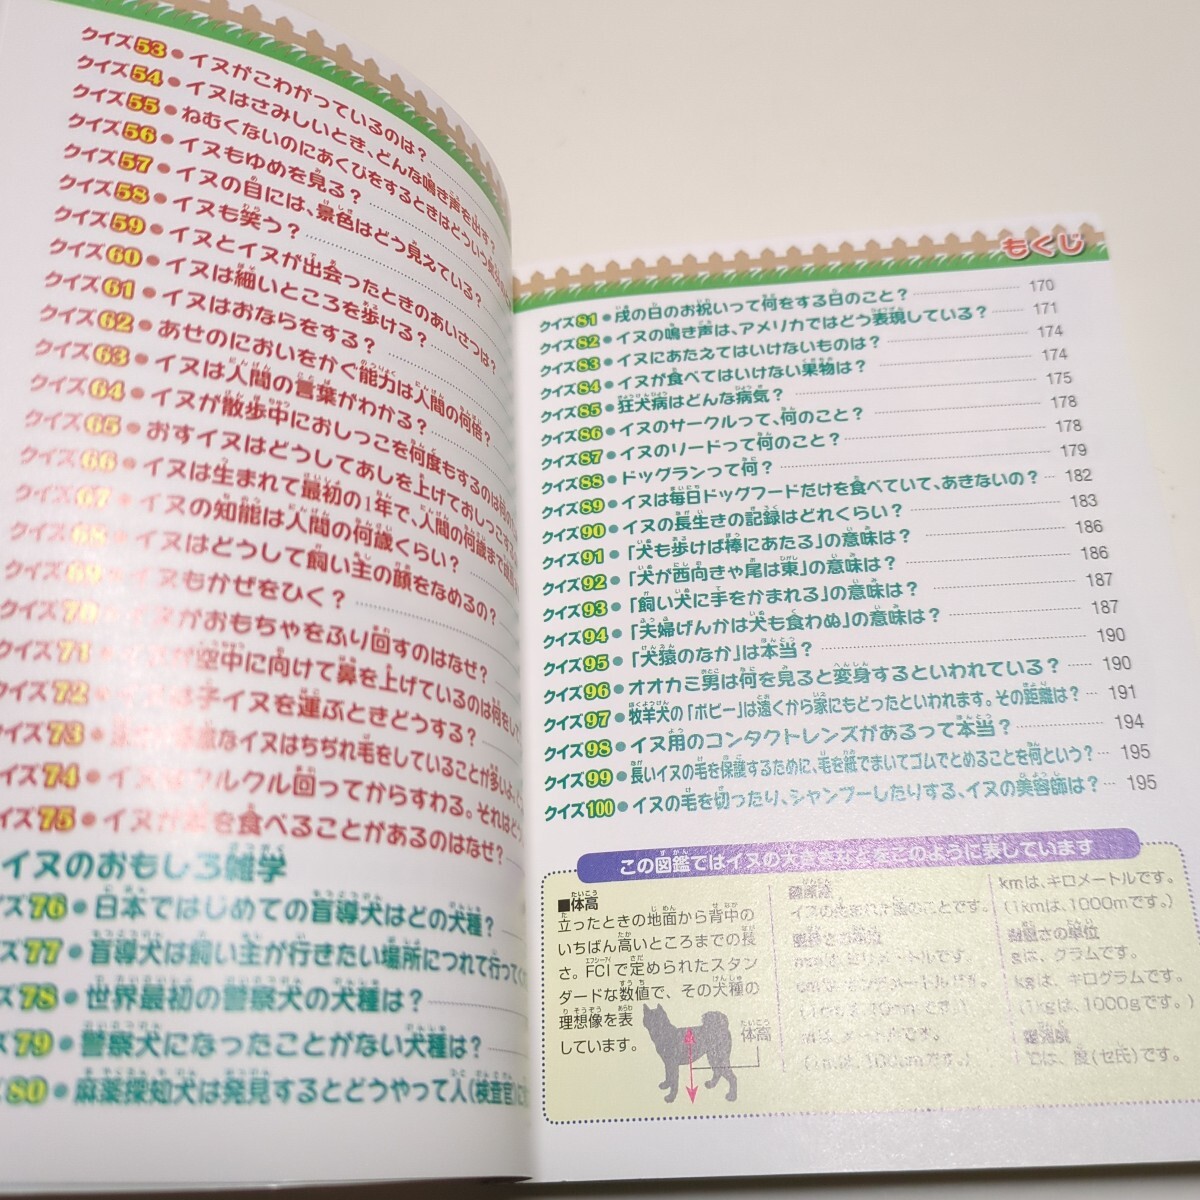 クイズ53●イヌがこわがっているのは？
クイズ54●イヌはさみしいとき、どんな鳴き声を出す？
クイズ55●ねむくないのにあくびをするときはどういう気
クイズ56●イヌもゆめを見る？
クイズ57●イヌの目には、景色はどう見えている？
クイズ58●イヌも笑う？
クイズ59●イヌとイヌが出会ったときのあいさつは？
クイズ60●イヌは細いところを歩ける？
クイズ61●イヌはおならをする？
クイズ62●あせのにおいをかぐ能力は人間の何倍？
クイズ63●イヌは人間の言葉がわかる？
クイズ64●イヌが散歩中におしっこを何度もするのは何の
クイズ65●おすイヌはどうしてあしを上げておしっこす
クイズ66●イヌは生まれて最初の1年で、人間の何歳まで
クイズ67●イヌの知能は人間の何歳くらい？
クイズ68●イヌはどうして飼い主の顔をなめるの？
クイズ69●イヌもかぜをひく？
クイズ70●イヌがおもちゃをふり回すのはなぜ？
クイズ71●イヌが空中に向けて鼻を上げているのは何をし
クイズ72●イヌは子イヌを運ぶときどうする？
イズ73●なイヌはちぢれ毛をしていることが多い
イズ74●イヌはクルクル回ってからすわる。それはどう
イズ75●イヌが草を食べることがあるのはなぜ？
イヌのおもしろ雑学
イズ76●日本ではじめての盲導犬はどの犬種？
ズ77●盲導犬は飼い主が行きたい場所につれて行って
ズ78●世界最初の警察犬の犬種は？
ズ79●警察犬になったことがない犬種は？
80●麻薬探知犬は発見するとどうやって人(検査官)に
もくじ
クイズ81●戌の日のお祝いって何をする日のこと？ 170
クイズ82●イヌの鳴き声は、アメリカではどう表現している？ 171
クイズ83●イヌにあたえてはいけないものは？ 174
クイズ84●イヌが食べてはいけない果物は？ 174
クイズ85●狂犬病はどんな病気？ 175
クイズ86●イヌのサークルって、何のこと？ 178
クイズ87●イヌのリードって何のこと？ 178
クイズ88●ドッグランって何？ 179
クイズ89●イヌは毎日ドッグフードだけを食べていて、あきないの？ 182
クイズ90●イヌの長生きの記録はどれくらい？ 183
クイズ91●「犬も歩けば棒にあたる」の意味は？ 186
クイズ92●「犬が西向きゃ尾は東」の意味は？ 186
クイズ93●「飼い犬に手をかまれる」の意味は？ 187
クイズ94●「夫婦げんかは犬も食わぬ」の意味は？ 187
クイズ95●「犬猿のなか」は本当？ 190
クイズ96●オオカミ男は何を見ると変身するといわれている？ 190
クイズ97●牧羊犬の「ボビー」は遠くから家にもどったといわれます。その距離は？ 191
クイズ98●イヌ用のコンタクトレンズがあるって本当？ 194
クイズ99●長いイヌの毛を保護するために、毛を紙でまいてゴムでとめることを何という？ 195
クイズ100●イヌの毛を切ったり、シャンプーしたりする、イヌの美容師は？ 195
この図鑑ではイヌの大きさなどをこのように表しています
■体高
立ったときの地面から背中の
いちばん高いところまでの長
さ。FCIで定められたスタン
ダードな数値で、その犬種の
理想像を表
しています。
体高
原産地
イヌの生まれた国のことです。
長さの単位
kmは、キロメートルです。
(1kmは、1000mです。)
重さの単位
gは、グラムです。
kgは、キログラムです。
(1kgは、1000gです。)
℃は、度(セ氏)です。